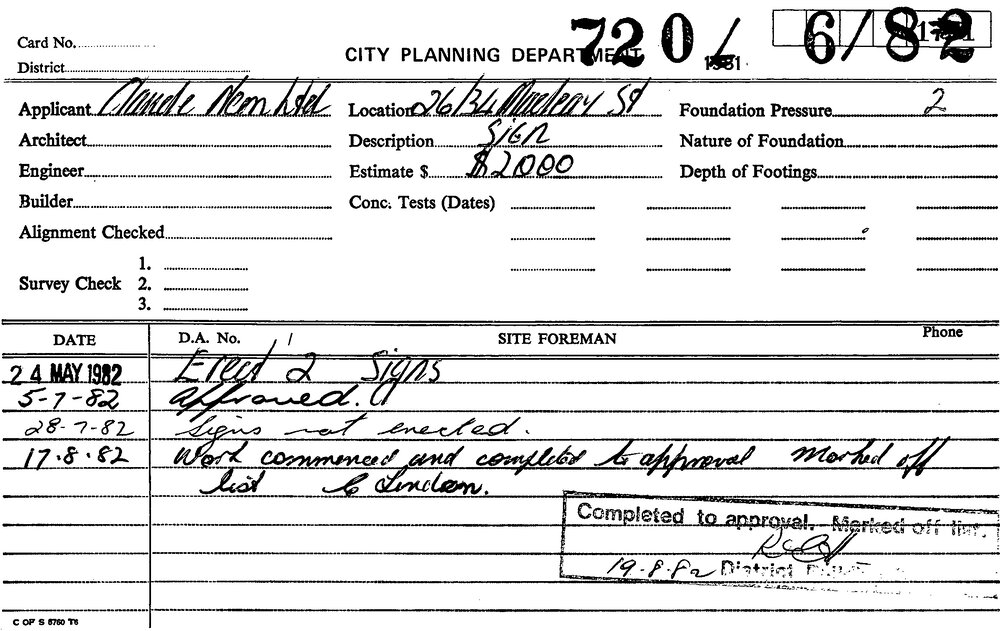 720/ 6/82
Card No.
CITY PLANNING DEPARTMENT
District
Applicant Claude Neon Ltd Location 26/34 Macleay St Foundation Pressure 2
Architect Description Sign Nature of Foundation
Engineer Estimate $ $2000 Depth of Footings
Builder Conc. Tests (Dates)
Alignment Checked
1.
Survey Check 2.
3.
DATE D.A. No. / SITE FOREMAN Phone
24 MAY 1982 Erect 2 Signs
5-7-82 Approved.
28-7-82 Signs not erected.
17.8.82 Work commenced and completed to approval Marked off
list
Completed to approval. Marked off list.
19-8-82 District
C OF S 5760 T6